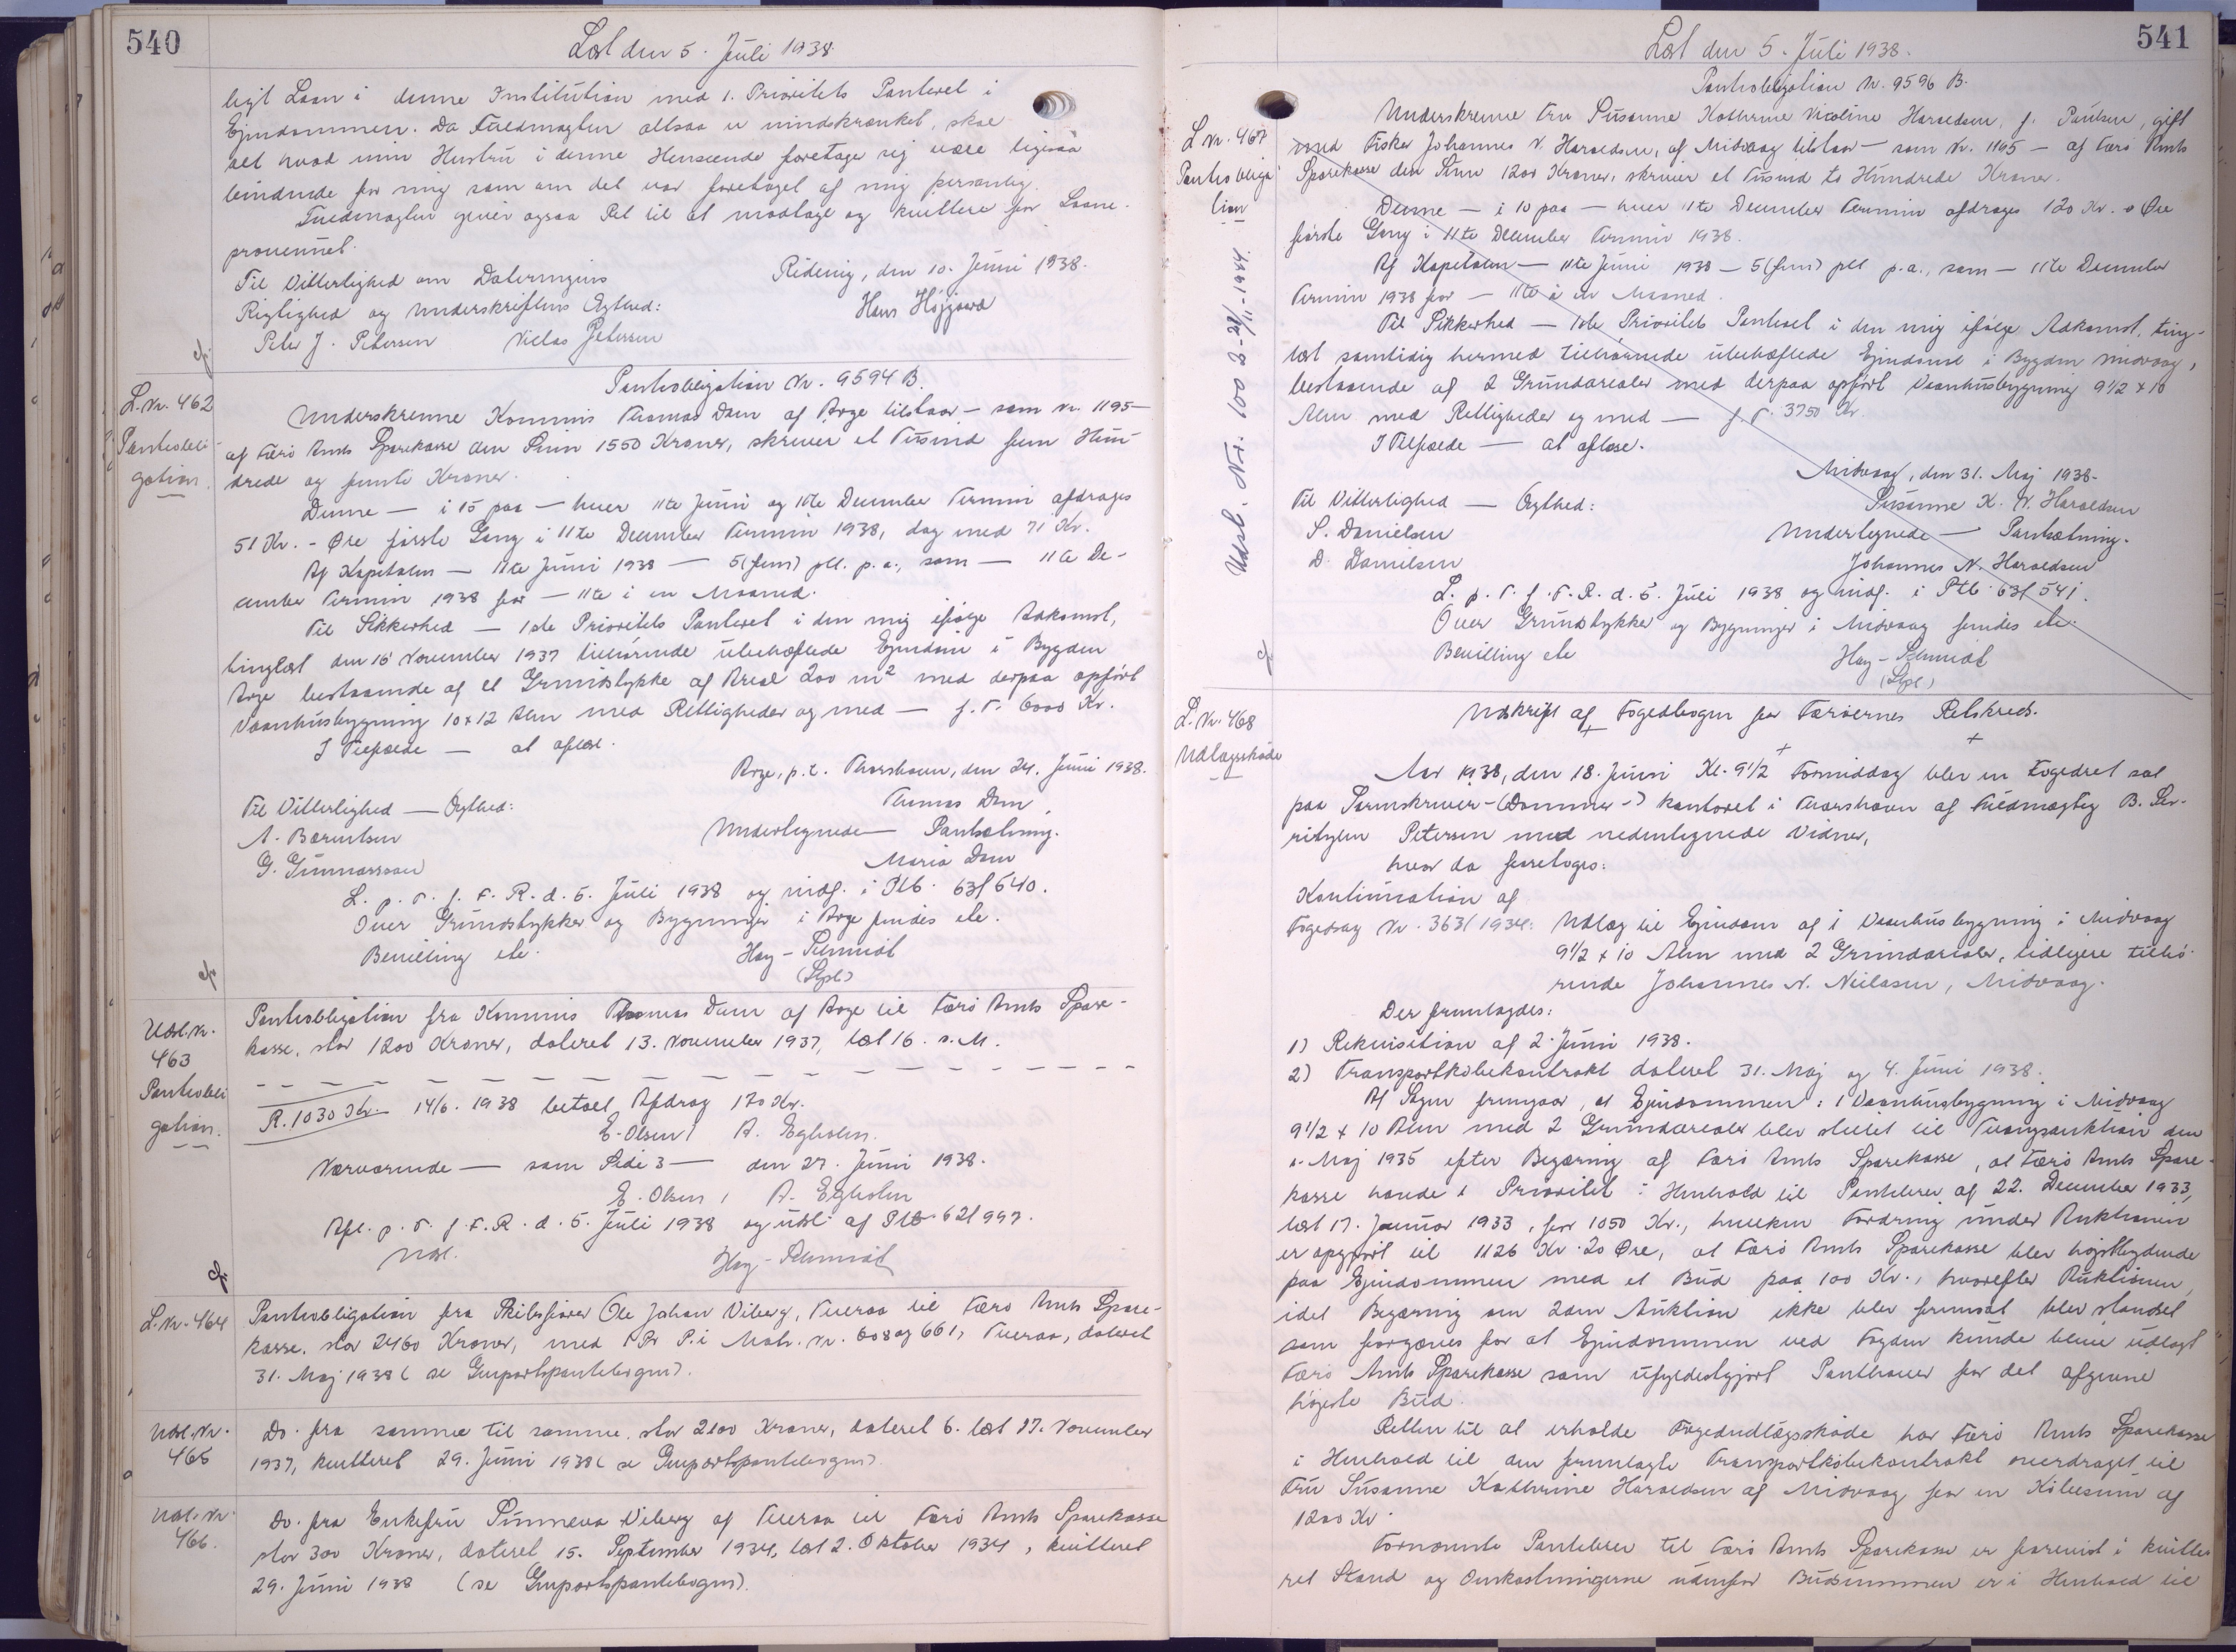 540
Læst den 5. Juli 1938.
ligt Laan i denne Institution med 1. Prioritets Panteret i
Ejendommen. Da Fuldmagten altsaa er uindskrænket, skal
alt hvad min Hustru i denne Henseende foretage sig være ligesaa
bindende for mig som om det var foretaget af mig personlig.
Fuldmagten giver ogsaa Ret til at modtage og kvittere for Laane-
provenuet.
Til Vitterlighed om Dateringens
Rigtighed og Underskriftens Ægthed:
Ridevig, den 10. Juni 1938.
Hans Højgaard
Peter J. Petersen Niclas Petersen
L. Nr. 462
Pantobli-
gation.
Pantobligation Nr. 9594 B.
Underskrevne Kommis Thomas Dam af Arge tilstaar — som Nr. 1195 —
af Færø Amts Sparekasse den Sum 1550 Kroner, skriver et Tusind fem Hun-
drede og femti Kroner.
Denne — i 15 paa — hver 11te Juni og 11te December Termin afdrages
51 Kr. - Øre første Gang i 11te December Termin 1938, dog med 71 Kr.
Af Kapitalen — 11te Juni 1938 — 5 (fem) pCt. p.a., som — 11te De-
cember Termin 1938 for — 11te i en Maaned.
Til Sikkerhed — 1ste Prioritets Panteret i den mig ifølge Adkomst,
tinglæst den 16 November 1937 tilhørende ubehæftede Ejendom i Bygden
Arge bestaaende af et Grundstykke af Areal 200 m² med derpaa opført
Vaanhusbygning 10 x 12 Alen med Rettigheder og med — f. T. 6000 Kr.
I Tilfælde — at aflæse.
Arge, p.t. Thorshavn, den 24. Juni 1938.
Til Vitterlighed — Ægthed:
Thomas Dam
A. Bærentsen
Undertegnede — Pantsætning.
G. Gunnarsson
Maria Dam
L. p. T. f. F. R. d. 5. Juli 1938 og indf. i Ptb. 63/540.
Over Grundstykker og Bygninger i Arge findes etc.
Bevilling etc.
Hay-Schmidt
(Stpl.)
Udsl. Nr.
463
Pantobli
gation.
Pantobligation fra Kommis Thomas Dam af Arge til Færø Amts Spare-
kasse, stor 1200 Kroner, dateret 13. November 1937, læst 16. s. M.
R. 1030 Kr. 14/6. 1938 betalt Afdrag 170 Kr.
E. Olsen / A. Egholm.
Nærværende — som Side 3 — den 27. Juni 1938.
E. Olsen / A. Egholm
Afl. p. T. f. F. R. d. 5. Juli 1938 og udsl. af Ptb. 62/997.
Udsl.
Hay-Schmidt
L. Nr. 464
Pantobligation fra Skibsfører Ole Johan Viberg, Tveraa til Færø Amts Spare-
kasse, stor 2460 Kroner, med 1 Pr P. i Matr. Nr. 608 og 661, Tveraa, dateret
31. Maj 1938 (se Ginpartspantebogen).
Udsl. Nr.
465
Do. fra samme til samme, stor 2100 Kroner, dateret 6. læst 17. November
1937, kvitteret 29. Juni 1938 (se Ginpartspantebogen).
Udsl. Nr
466.
Do. fra Enkefru Sunneva Viberg af Tveraa til Færø Amts Sparekasse
stor 300 Kroner, dateret 15. September 1934, læst 2. Oktober 1934, kvitteret
29. Juni 1938 (se Ginpartspantebogen).
541
Læst den 5. Juli 1938.
L. Nr. 467
Pantobliga
tion
Udsl. Nr. 100 d. 28/11-1944
Pantobligation Nr. 9596 B.
Underskrevne Fru Susanne Kathrine Nicoline Haraldsen, f. Paulsen, gift
med Fisker Johannes N. Haraldsen, af Midvaag tilstaar — som Nr. 1165 — af Færø Amts
Sparekasse den Sum 1200 Kroner, skriver et Tusind to Hundrede Kroner.
Denne — i 10 paa — hver 11te December Termin afdrages 120 Kr. 0 Øre
første Gang i 11te December Termin 1938.
Af Kapitalen — 11te Juni 1938 — 5 (fem) pCt p.a., som — 11te December
Termin 1938 for — 11te i en Maaned.
Til Sikkerhed — 1ste Prioritets Panteret i den mig ifølge Adkomst, ting-
læst samtidig hermed tilhørende ubehæftede Ejendom i Bygden Midvaag,
bestaaende af 2 Grundarealer med derpaa opført Vaanhusbygning 9½ x 10
Alen med Rettigheder og med — f. T. 3750 Kr.
I Tilfælde — at aflæse.
Midvaag, den 31. Maj 1938.
Til Vitterlighed — Ægthed:
Susanne K. N. Haraldsen
S. Danielsen
Undertegnede — Pantsætning.
D. Danielsen
Johannes N. Haraldsen
L. p. T. f. F. R. d. 5. Juli 1938 og indf. i Ptb. 63/541.
Over Grundstykker og Bygninger i Midvaag findes etc.
Bevilling etc
Hay-Schmidt
(Stpl.)
L. Nr. 468
Udlægsskøde
Udskrift af Fogedbogen for Færøernes Retskreds.
Aar 1938, den 18. Juni Kl. 9½ Formiddag blev en Fogedret sat
paa Sorenskriver-(Dommer-) kontoret i Thorshavn af Fuldmægtig B. Se-
Petersen med nedentegnede Vidner,
hvor da foretoges:
Kontinuation af
Fogedsag Nr. 363/1934: Udlæg til Ejendom af 1 Vaanhusbygning i Midvaag
9½ x 10 Alen med 2 Grundarealer, tidligere tilhø-
rende Johannes N. Nielsen, Midvaag.
Der fremlagdes:
1) Rekvisition af 2. Juni 1938.
2) Transportkøbekontrakt dateret 31. Maj og 4. Juni 1938.
Af Sagen fremgaar, at Ejendommen: 1 Vaanhusbygning i Midvaag
9½ x 10 Alen med 2 Grundarealer blev stillet til Tvangsauktion den
Maj 1935 efter Begæring af Færø Amts Sparekasse, at Færø Amts Spare-
kasse havde 1 Prioritet i Henhold til Pantebrev af 22. December 1933,
læst 17. Januar 1933, for 1050 Kr., hvilken Fordring under Auktionen
er opgjort til 1126 Kr. 20 Øre, at Færø Amts Sparekasse blev højstbydende
paa Ejendommen med et Bud paa 100 Kr., hvorefter Auktionen,
idet Begæring om 2den Auktion ikke blev fremsat blev standset
som forgæves for at Ejendommen ved Fogden kunde blive udlagt
Færø Amts Sparekasse som ufyldestgjort Panthaver for det afgivne
højeste Bud.
Retten til at erholde Fogedudlægsskøde har Færø Amts Sparekasse
i Henhold til den fremlagte Transportkøbekontrakt overdraget til
Fru Susanne Kathrine Haraldsen af Midvaag for en Købesum af
1200 Kr.
Fornævnte Pantebrev til Færø Amts Sparekasse er forevist i kvitte-
ret Stand og Omkostningerne udenfor Budsummen er i Henhold til